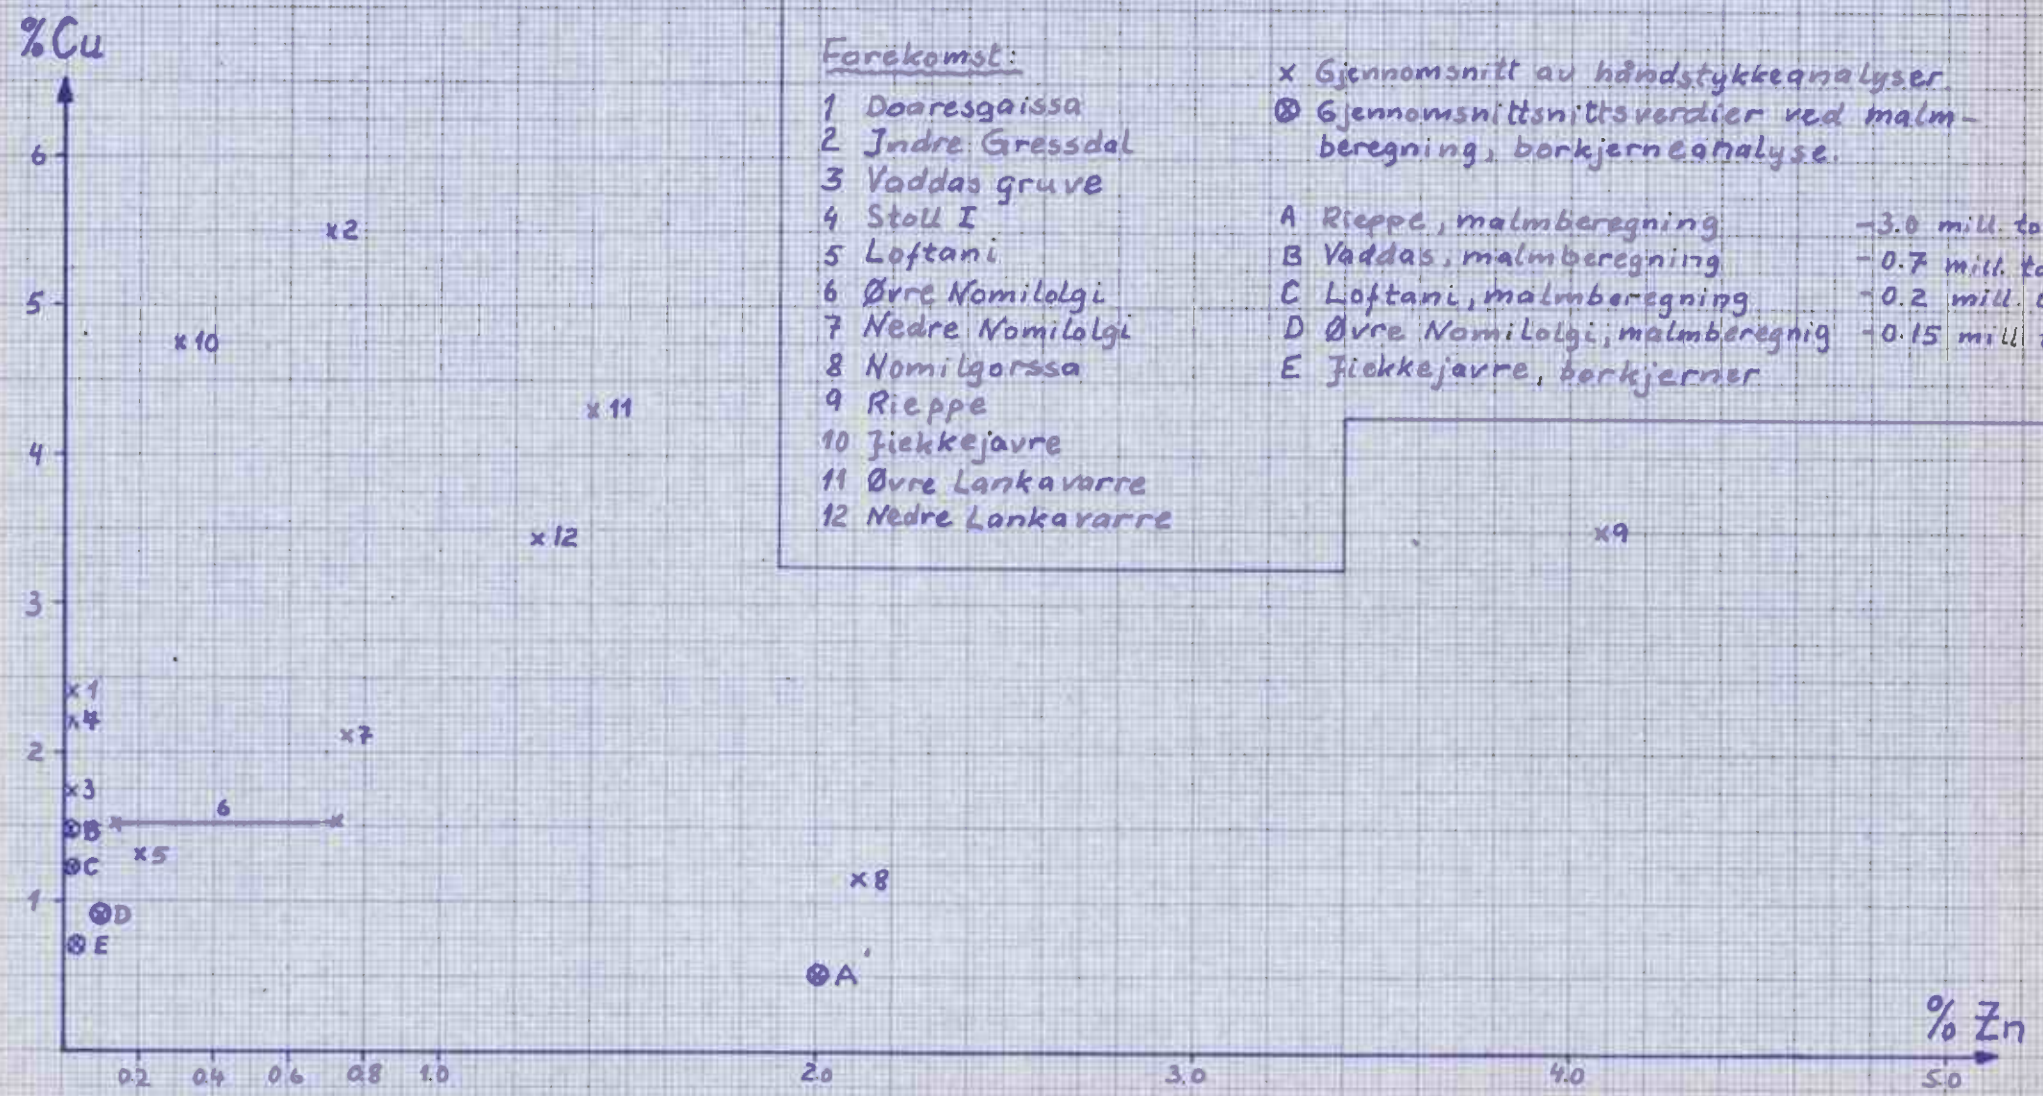 %Cu
Forekomst:
1 Doaresgaissa
2 Indre Gressdal
3 Vaddas gruve
4 Stoll I
5 Loftani
6 Øvre Nomilolgi
7 Nedre Nomilolgi
8 Nomilgorssa
9 Rieppe
10 Jiekkejavre
11 Øvre Lankavarre
12 Nedre Lankavarre
x Gjennomsnitt av håndstykkeanalyser.
⊗ Gjennomsnittsnittsverdier ved malm-
beregning, borkjerneanalyse.
A Rieppe, malmberegning -3.0 mill. to
B Vaddas, malmberegning -0.7 mill. to
C Loftani, malmberegning -0.2 mill.
D Øvre Nomilolgi, malmberegnig -0.15 mill
E Jiekkejavre, borkjerner
6
x2
5
x10
x11
4
x12
x9
3
x1
x4
x7
2
x3
6
⊗B
x5
⊗C
x8
1
⊗D
⊗E
⊗A
% Zn
0.2 0.4 0.6 0.8 1.0 2.0 3.0 4.0 5.0